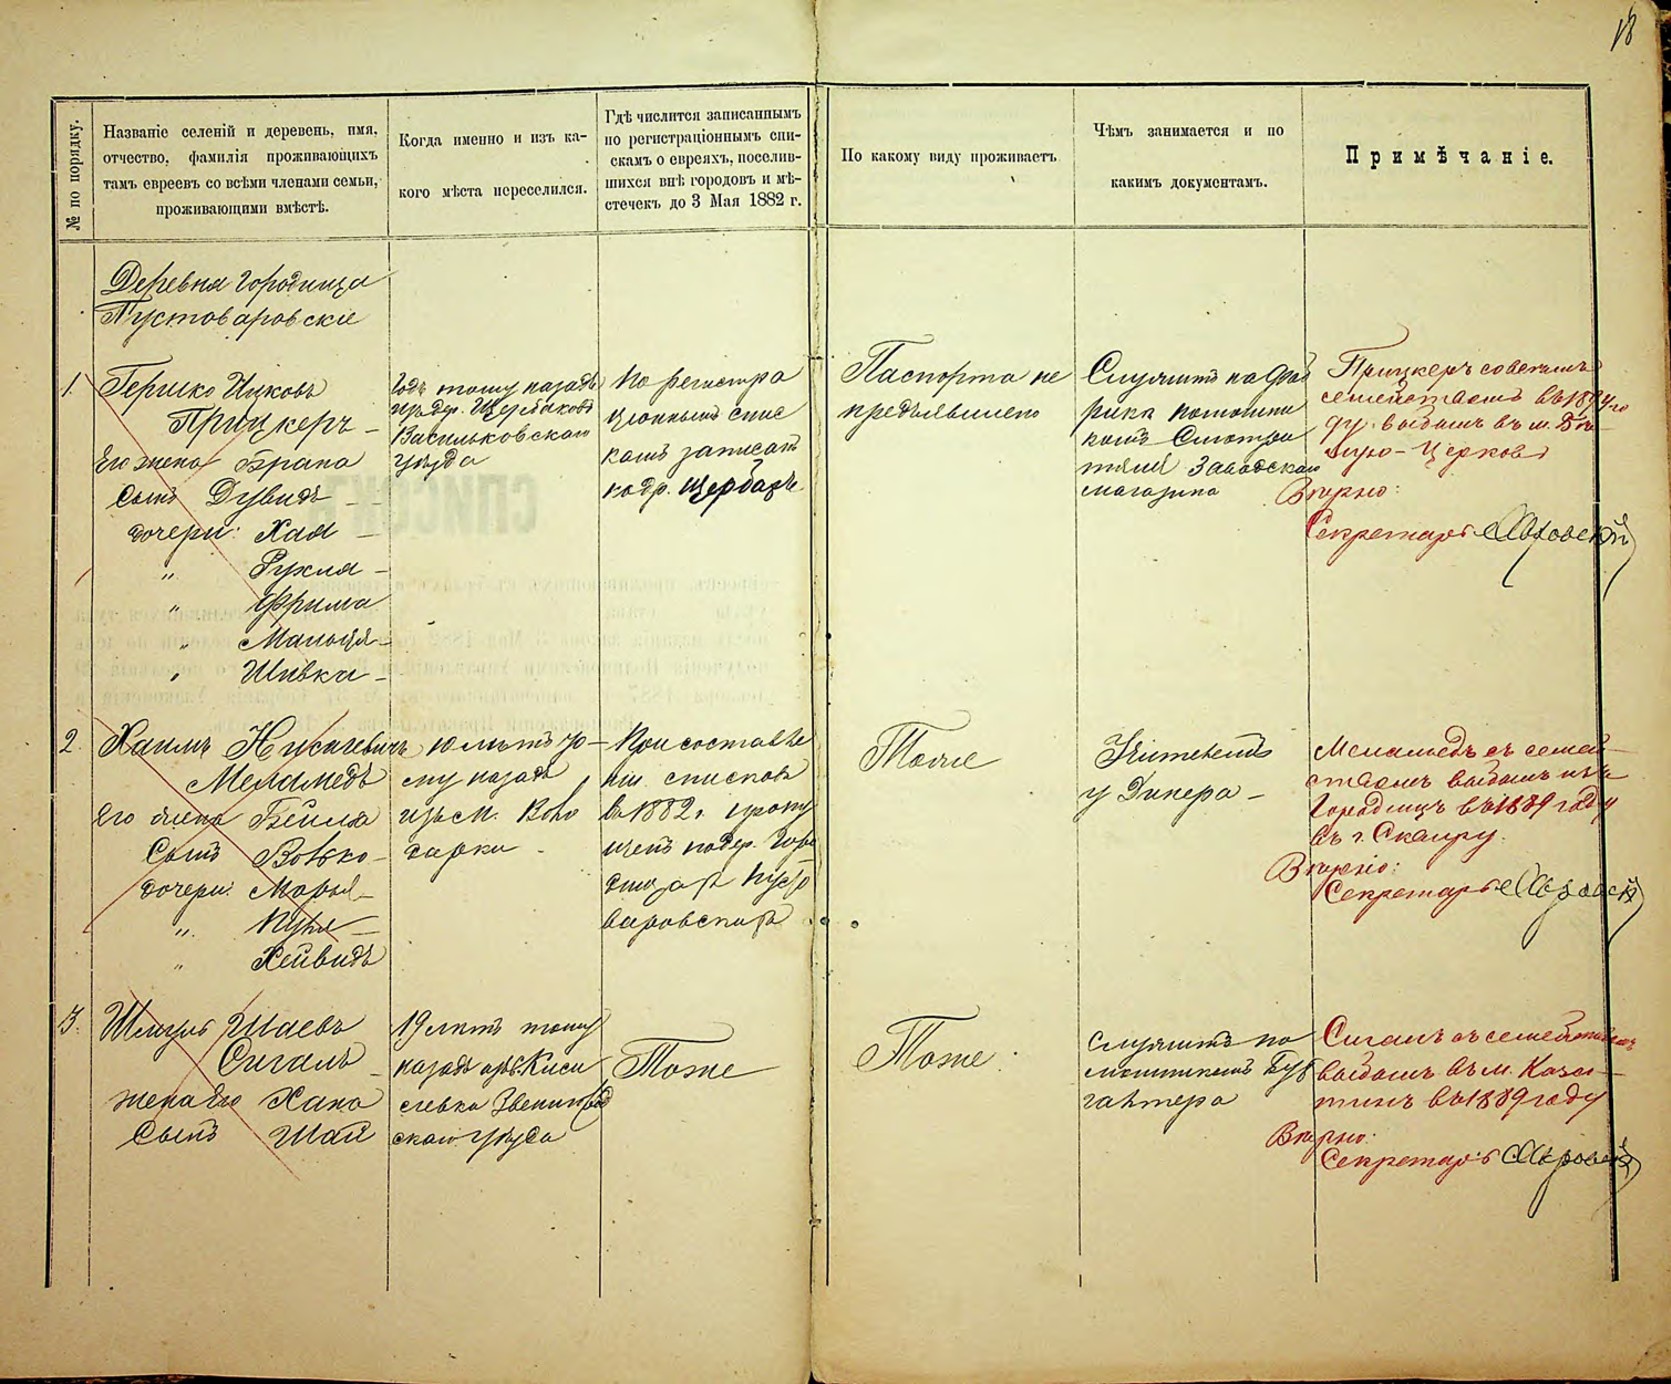 18
№ по порядку.
Названіе селеній и деревень, имя,
отчество, фамилія проживающихъ
тамъ евреевъ со всѣми членами семьи,
проживающими вмѣстѣ.
Когда именно и изъ ка-
кого мѣста переселился.
Гдѣ числится записаннымъ
по регистраціоннымъ спи-
скамъ о евреяхъ, поселив-
шихся внѣ городовъ и мѣ-
стечекъ до 3 Мая 1882 г.
По какому виду проживаетъ
Чѣмъ занимается и по
какимъ документамъ.
Примѣчаніе.
Деревня Городища
Пустоваровскіе
1.
Гершко Ицковъ
Прицкеръ
Его жена Брана
Сынъ Дувидъ
дочери: Хая
" Рухля
" Фрима
" Маньця
" Шивка
Годъ тому назадъ
изъ дер. Щербаковъ
Васильковскаго
уѣзда
По регистра
ціоннымъ спис
камъ записанъ
по др.
Паспорта не
предъявлено
Служитъ на фаб
рикѣ помощни
комъ Смотри
теля Заводскаго
магазина
Прицкеръ со всѣмъ
семействомъ въ 1889 го
ду выбылъ въ м. Бѣ
лую-Церковь
Вѣрно:
Секретарь
2.
Хаимъ Нисигевичъ
Меламедъ
Его жена Бейла
Сынъ Волько
дочери: Марья
"
" Хейвидъ
10 лѣтъ то-
му назадъ
изъ м. Воло
дарки
При составле
ніи списковъ
въ 1882 г. пропу
щенъ по дер. Горо
дищахъ Пусто
варовскихъ
Тоже
Учителемъ
у Динера
Меламедъ съ семей-
ствомъ выбылъ изъ
Городищъ въ 1889 году
въ г. Сквиру.
Вѣрно:
Секретарь
3.
Шмуль Шаевъ
Сигалъ
жена Его Хана
Сынъ Шая
19 лѣтъ тому
назадъ изъ Киси
левки Звенигород
скаго уѣзда
Тоже
Тоже
Служитъ по
мощникомъ Бух
галтера
Сигалъ съ семействомъ
выбылъ въ м. Каза-
тинъ въ 1889 году
Вѣрно:
Секретарь